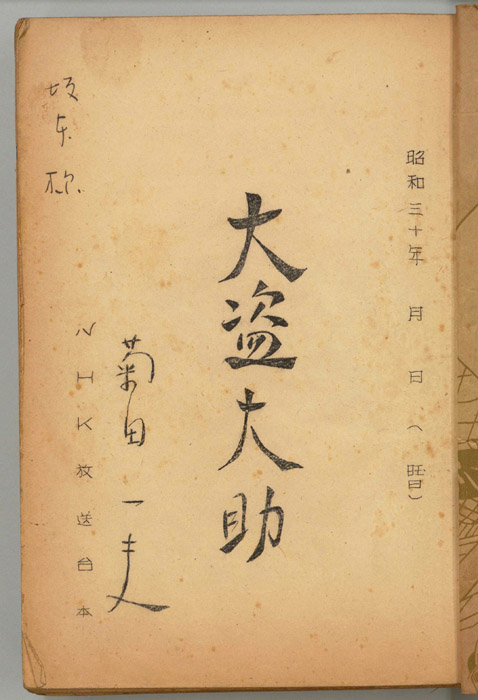 昭和三十年 月 日（ 曜日）
大盗大助
菊田一夫
NHK放送台本
坂本様